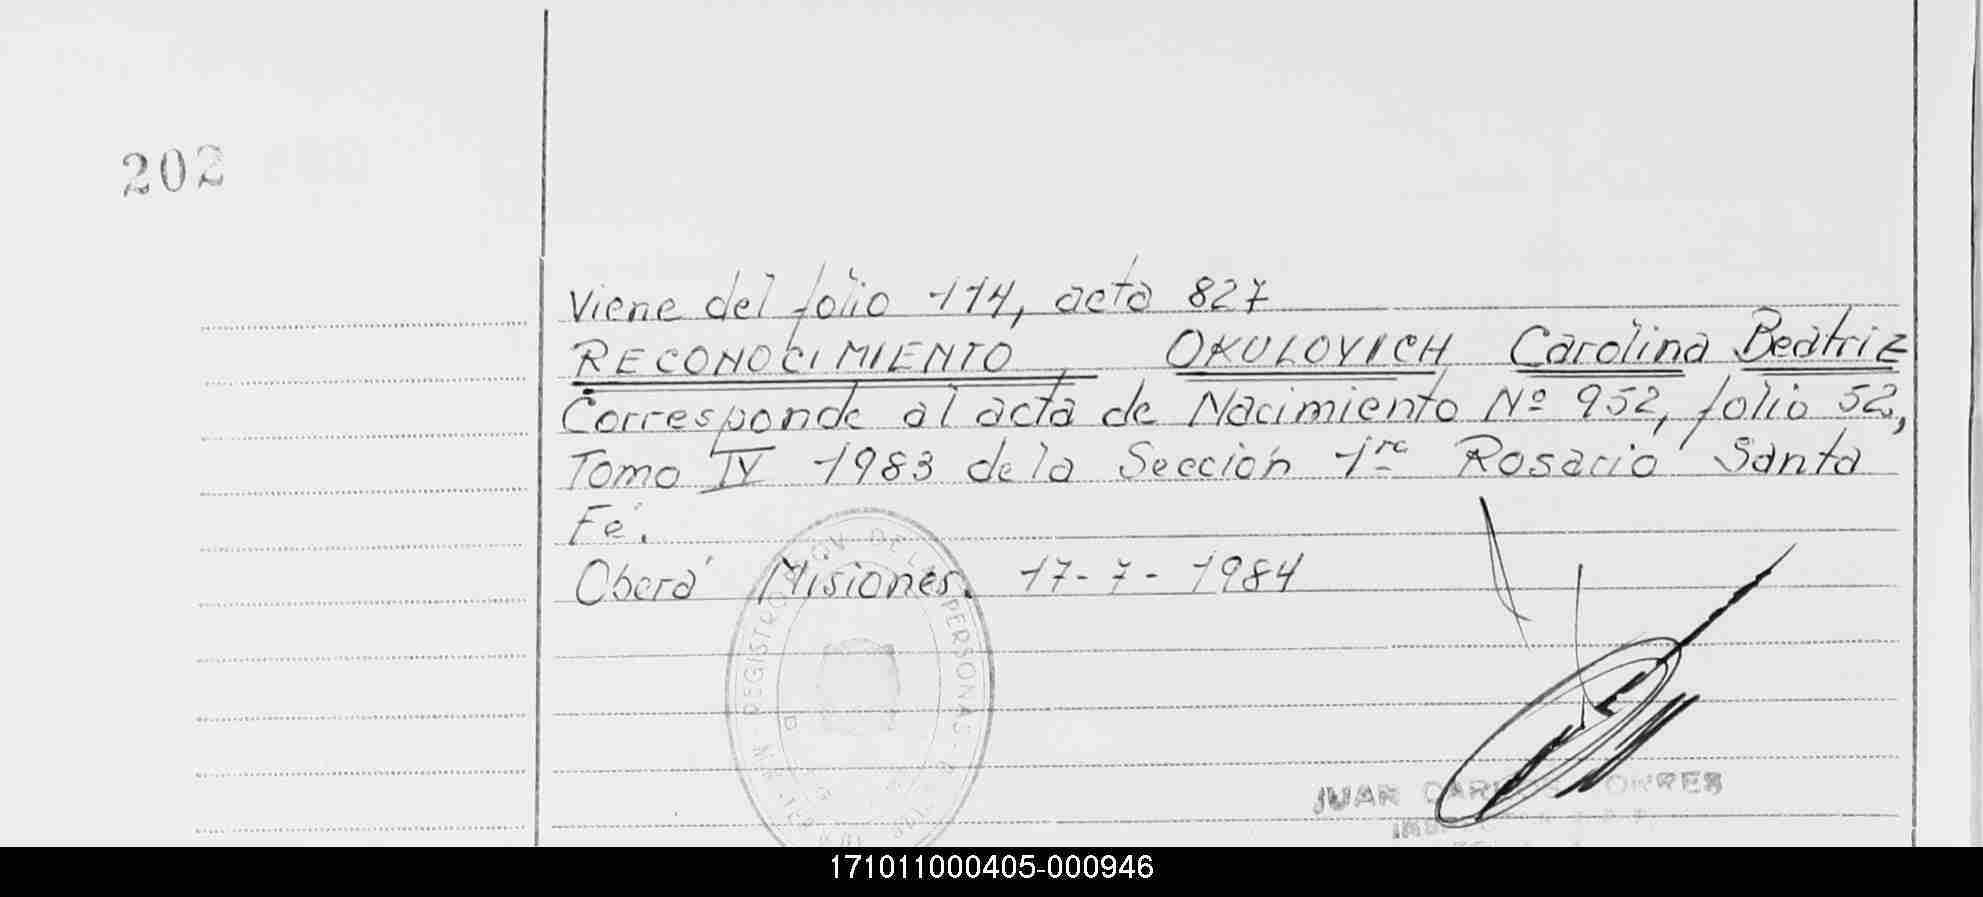 202
Viene del folio 114, acta 827
RECONOCIMIENTO OKULOVICH Carolina Beatriz
Corresponde al acta de Nacimiento Nº 952, folio 52,
Tomo IV 1983 de la Sección 1ra Rosario Santa
Fé.
Oberá Misiones. 17-7-1984
PERSONAS
JUAN CARLOS TORRES
171011000405-000946